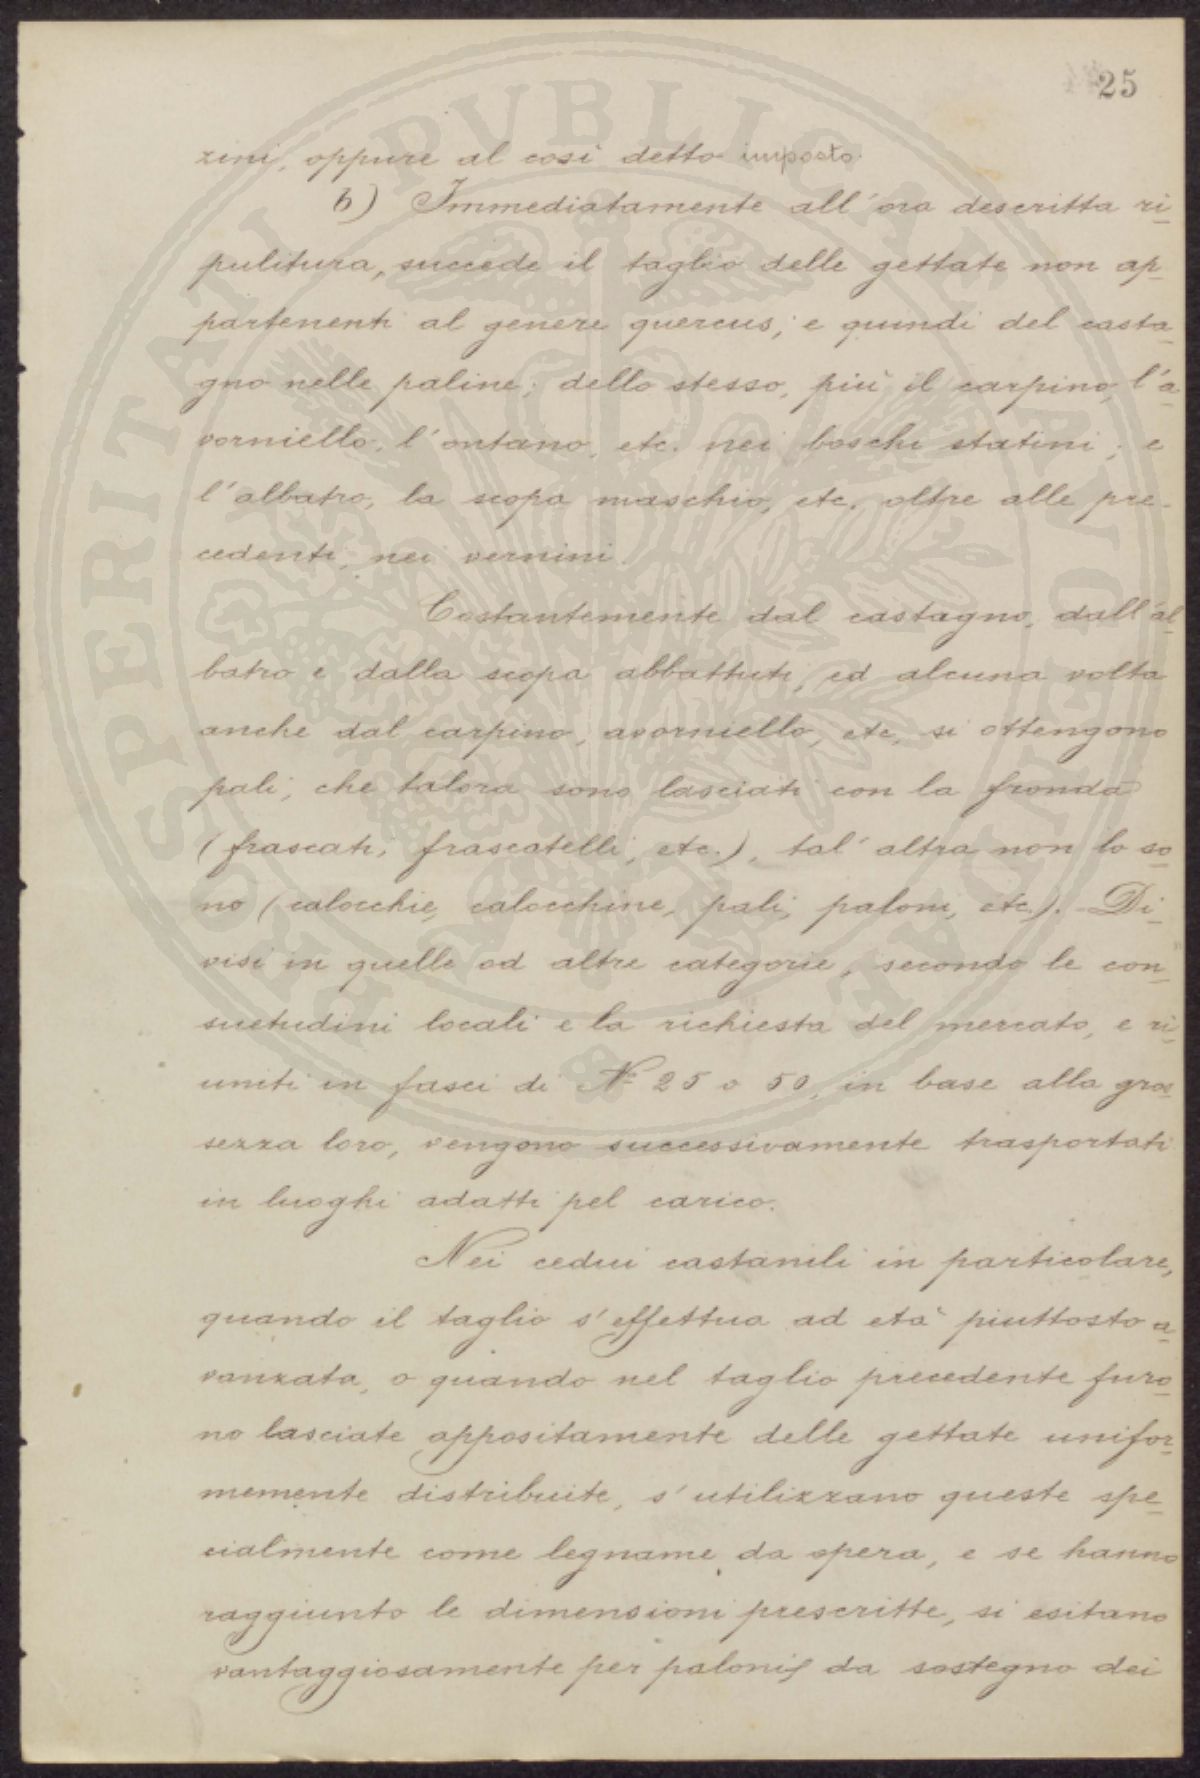 25
zini, oppure al così detto imposto
b) Immediatamente all'ora descritta ri-
pulitura, succede il taglio delle gettate non ap-
partenenti al genere quercus; e quindi del casta-
gno nelle paline; dello stesso, più il carpino, l'a-
vorniello, l'ontano, etc. nei boschi statini; e
l'albatro, la scopa maschio, etc. oltre alle pre-
cedenti, nei vernini.
Costantemente dal castagno, dall'al-
batro e dalla scopa abbattuti, ed alcuna volta
anche dal carpino, avorniello, etc, si ottengono
pali, che talora sono lasciati con la fronda
(frascati, frascatelli, etc.), tal'altra non lo so-
no (calocchie, calocchine, pali, paloni, etc.). - Di-
visi in quelle od altre categorie, secondo le con-
suetudini locali e la richiesta del mercato, e ri-
uniti in fasci di No 25 o 50, in base alla gros-
sezza loro, vengono successivamente trasportati
in luoghi adatti pel carico.
Nei cedui castanili in particolare,
quando il taglio s'effettua ad età piuttosto a-
vanzata, o quando nel taglio precedente furo-
no lasciate appositamente delle gettate unifor-
memente distribuite, s'utilizzano queste spe-
cialmente come legname da opera, e se hanno
raggiunto le dimensioni prescritte, si esitano
vantaggiosamente per paloni da sostegno dei
PROSPERITATI PUBLICAE AUGENDAE